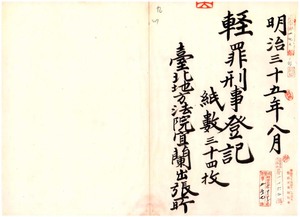 明治三十五年八月
軽罪刑事登記
紙數三十四枚
臺北地方法院宜蘭出張所